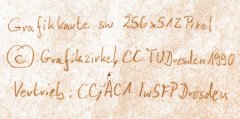 Grafikkarte sw 256x512 Pixel
(C) Grafikzirkel CC TU Dresden 1990
Vertrieb: CC; AC1 IwSFP Dresden